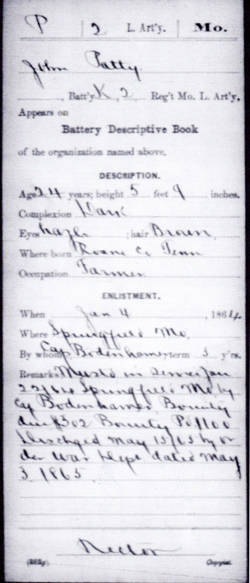 P 2 L. Art'y. Mo.
John Patty
, Batt'y K, 2 Reg't Mo. L. Art'y.
Appears on
Battery Descriptive Book
of the organization named above.
DESCRIPTION.
Age 24 years; height 5 feet 9 inches.
Complexion Dark
Eyes hazle; hair Brown
Where born Roane Co Tenn
Occupation Farmer
ENLISTMENT.
When Jan 4, 1864.
Where Springfield Mo.
By whom Cap Bodenhamer; term 3 y'rs.
Remarks: Mustd in service Jan
22/64 Springfield Mo by
Cap Bodenhamer. Bounty
due $302 Bounty Pd $100
Discharged May 15/65 by or
der War Dept dated May
3, 1865.
Rector
Copyist.